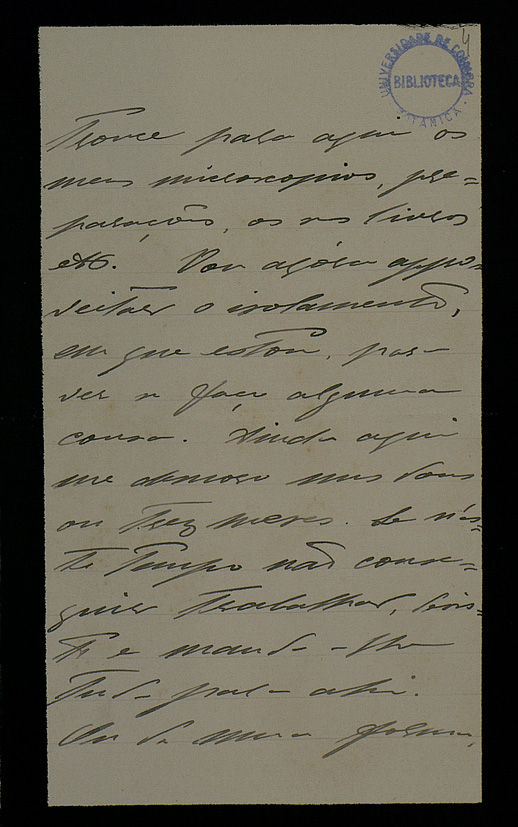 4
UNIVERSIDADE DE COIMBRA
BIBLIOTECA
BOTANICA
Trouce para aqui os
meus microscopios, pre=
parações, os livros
etc. Vou agora appro=
veitar o isolamento,
em que estou, para
ver se faço alguma
cousa. Ainda aqui
me demoro uns dous
ou trez mezes. Se n'es=
te tempo não conse=
guir trabalhar,
e mando-lhe
tudo para ahi.
Ou de uma forma,